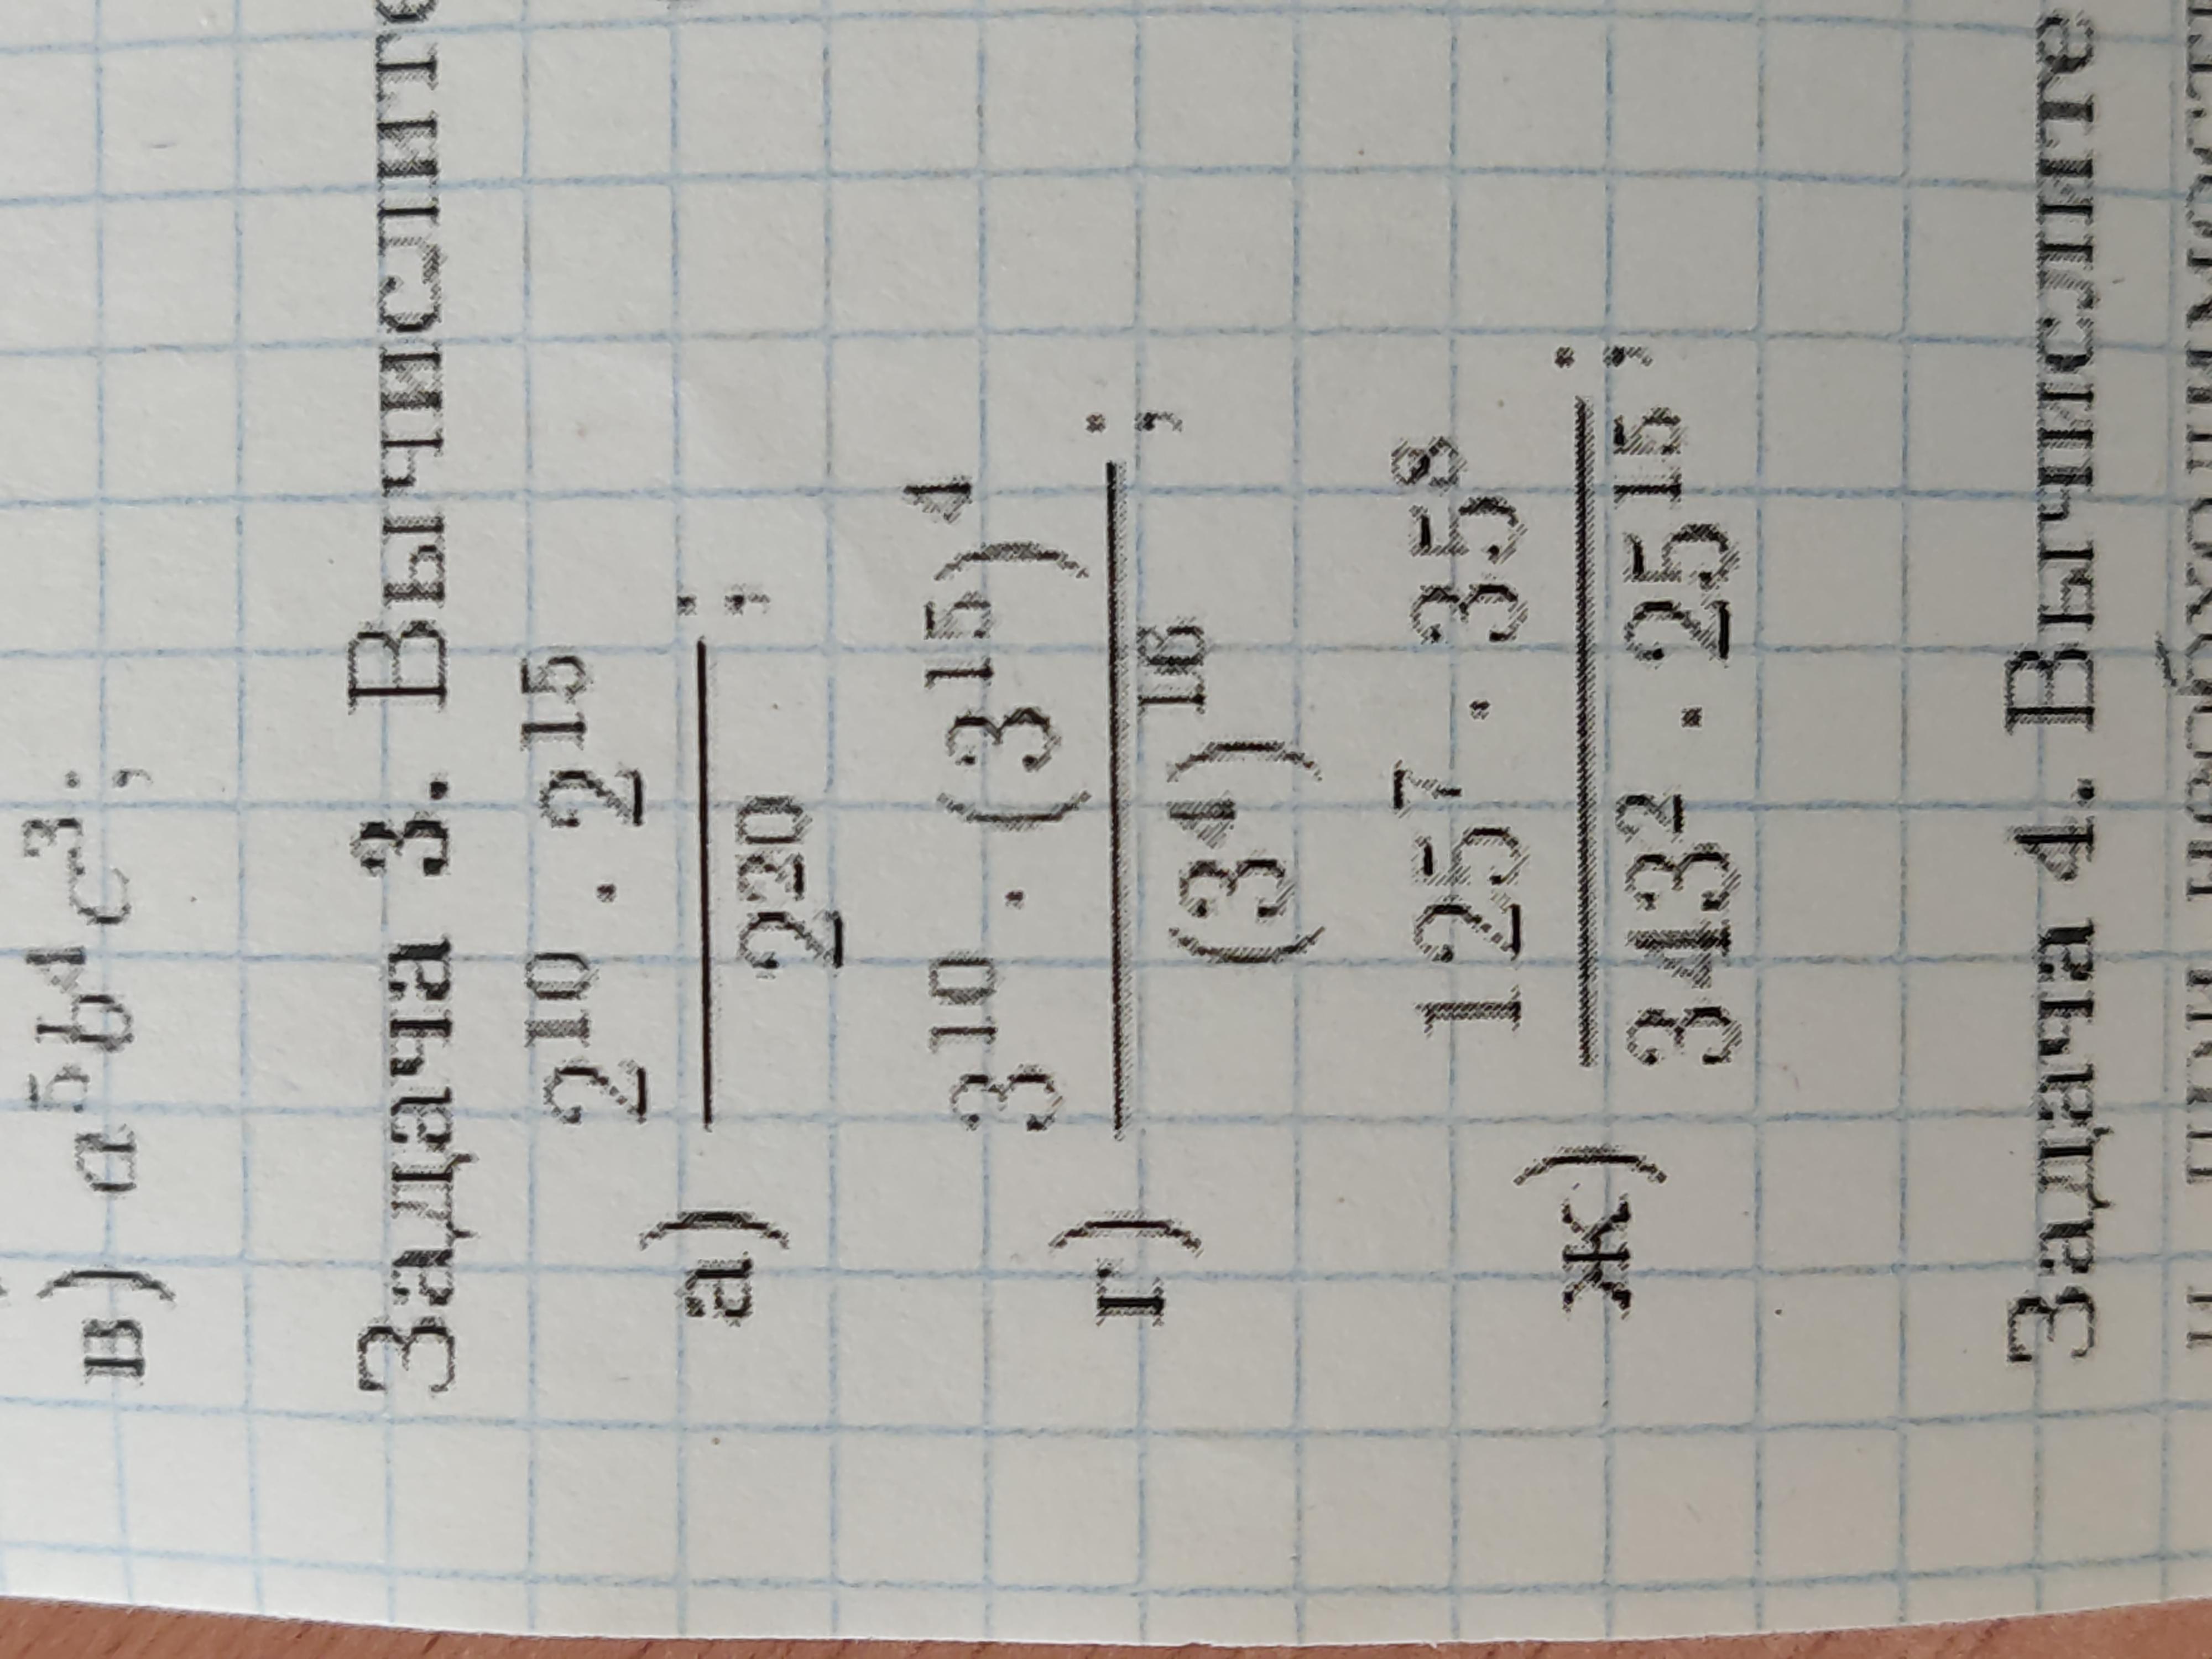 в) a⁵b⁴c³;
Задача 3. Вычислите
а) \frac{2^{10} · 2^{15}}{2^{20}};
г) \frac{3^{10} · (3^{15})^4}{(3^4)^{16}};
ж) \frac{125^7 · 35^8}{343^2 · 25^{15}};
Задача 4. Вычислите